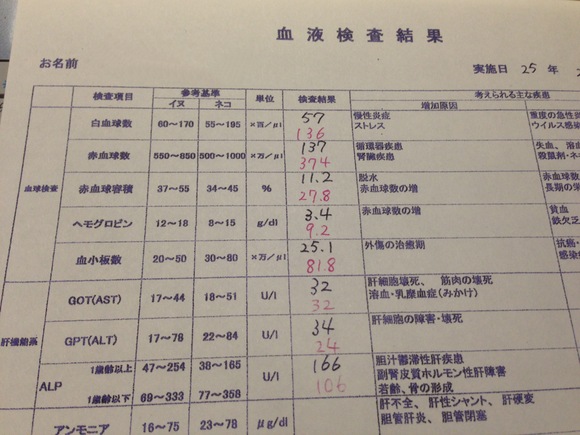 血液検査結果
お名前
実施日 25 年
検査項目 参考基準 単位 検査結果 考えられる主な疾患
イヌ ネコ 増加原因
血球検査
白血球数 60~170 55~195 ×百/μl 57 慢性炎症 重度の急性炎
136 ストレス ウイルス感染
赤血球数 550~850 500~1000 ×万/μl 137 循環器疾患 失血、溶血
374 腎臓疾患 殺鼠剤・ネ
赤血球容積 37~55 34~45 % 11.2 脱水 赤血球数
27.8 赤血球数の増 長期の
ヘモグロビン 12~18 8~15 g/dl 3.4 赤血球数の増 貧血
9.2 鉄欠乏
血小板数 20~50 30~80 ×万/μl 25.1 外傷の治癒期 抗癌・
81.8 感染
肝機能系
GOT(AST) 17~44 18~51 U/l 32 肝細胞壊死、 筋肉の壊死
32 溶血・乳糜血症(みかけ)
GPT(ALT) 17~78 22~84 U/l 34 肝細胞の障害・壊死
24
ALP 1歳齢以上 47~254 38~165 U/l 166 胆汁鬱滞性肝疾患
副腎皮質ホルモン性肝障害
1歳齢以下 69~333 77~358 106 若齢、骨の形成
アンモニア 16~75 23~78 μg/dl 肝不全、 肝性シャント、 肝硬変
胆管肝炎、 胆管閉塞